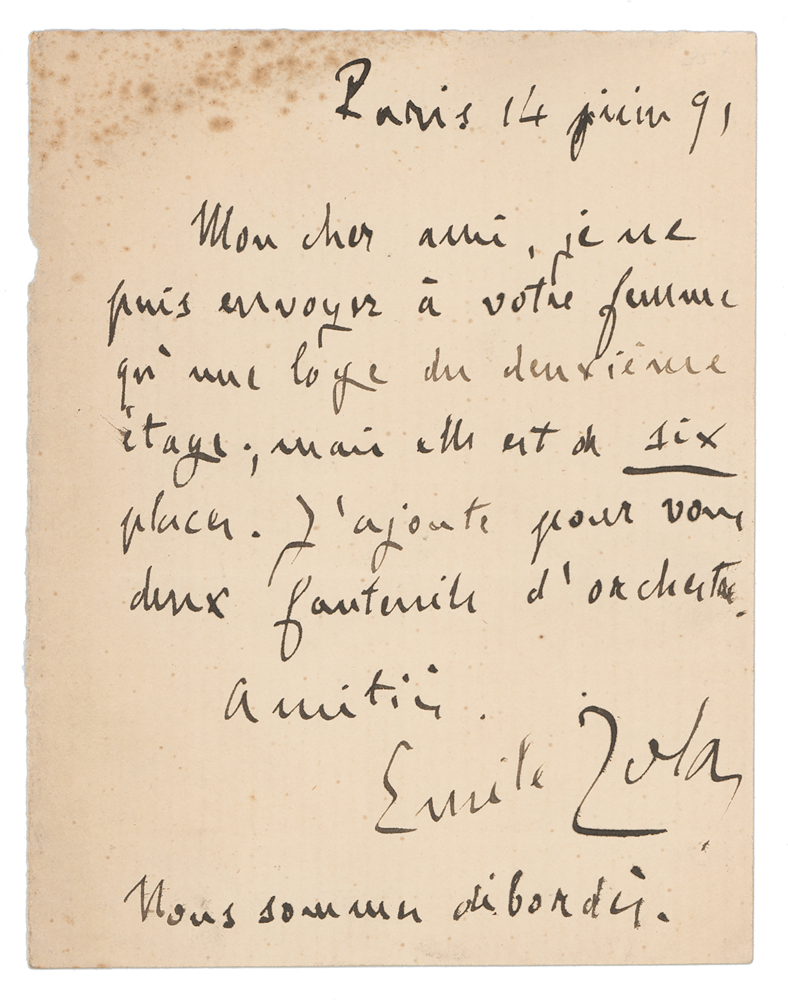 Paris 14 juin 91
Mon cher ami, je ne
puis envoyer à votre femme
qu'une loge du deuxième
étage ; mais elle est de six
places. J'ajoute pour vous
deux fauteuils d'orchestre.
Amitiés.
Emile Zola
Nous sommes débordés.